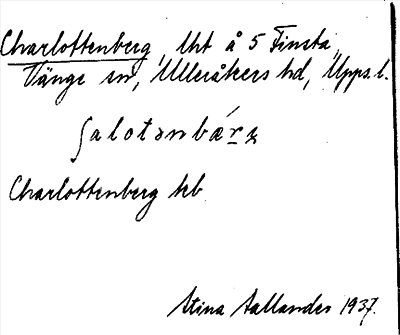 Charlottenberg, lht å 5 Finsta,
Vänge sn, Ulleråkers hd, Upps. l.
ʃalotənbærɪ
Charlottenberg kb
Stina Aallander 1937.